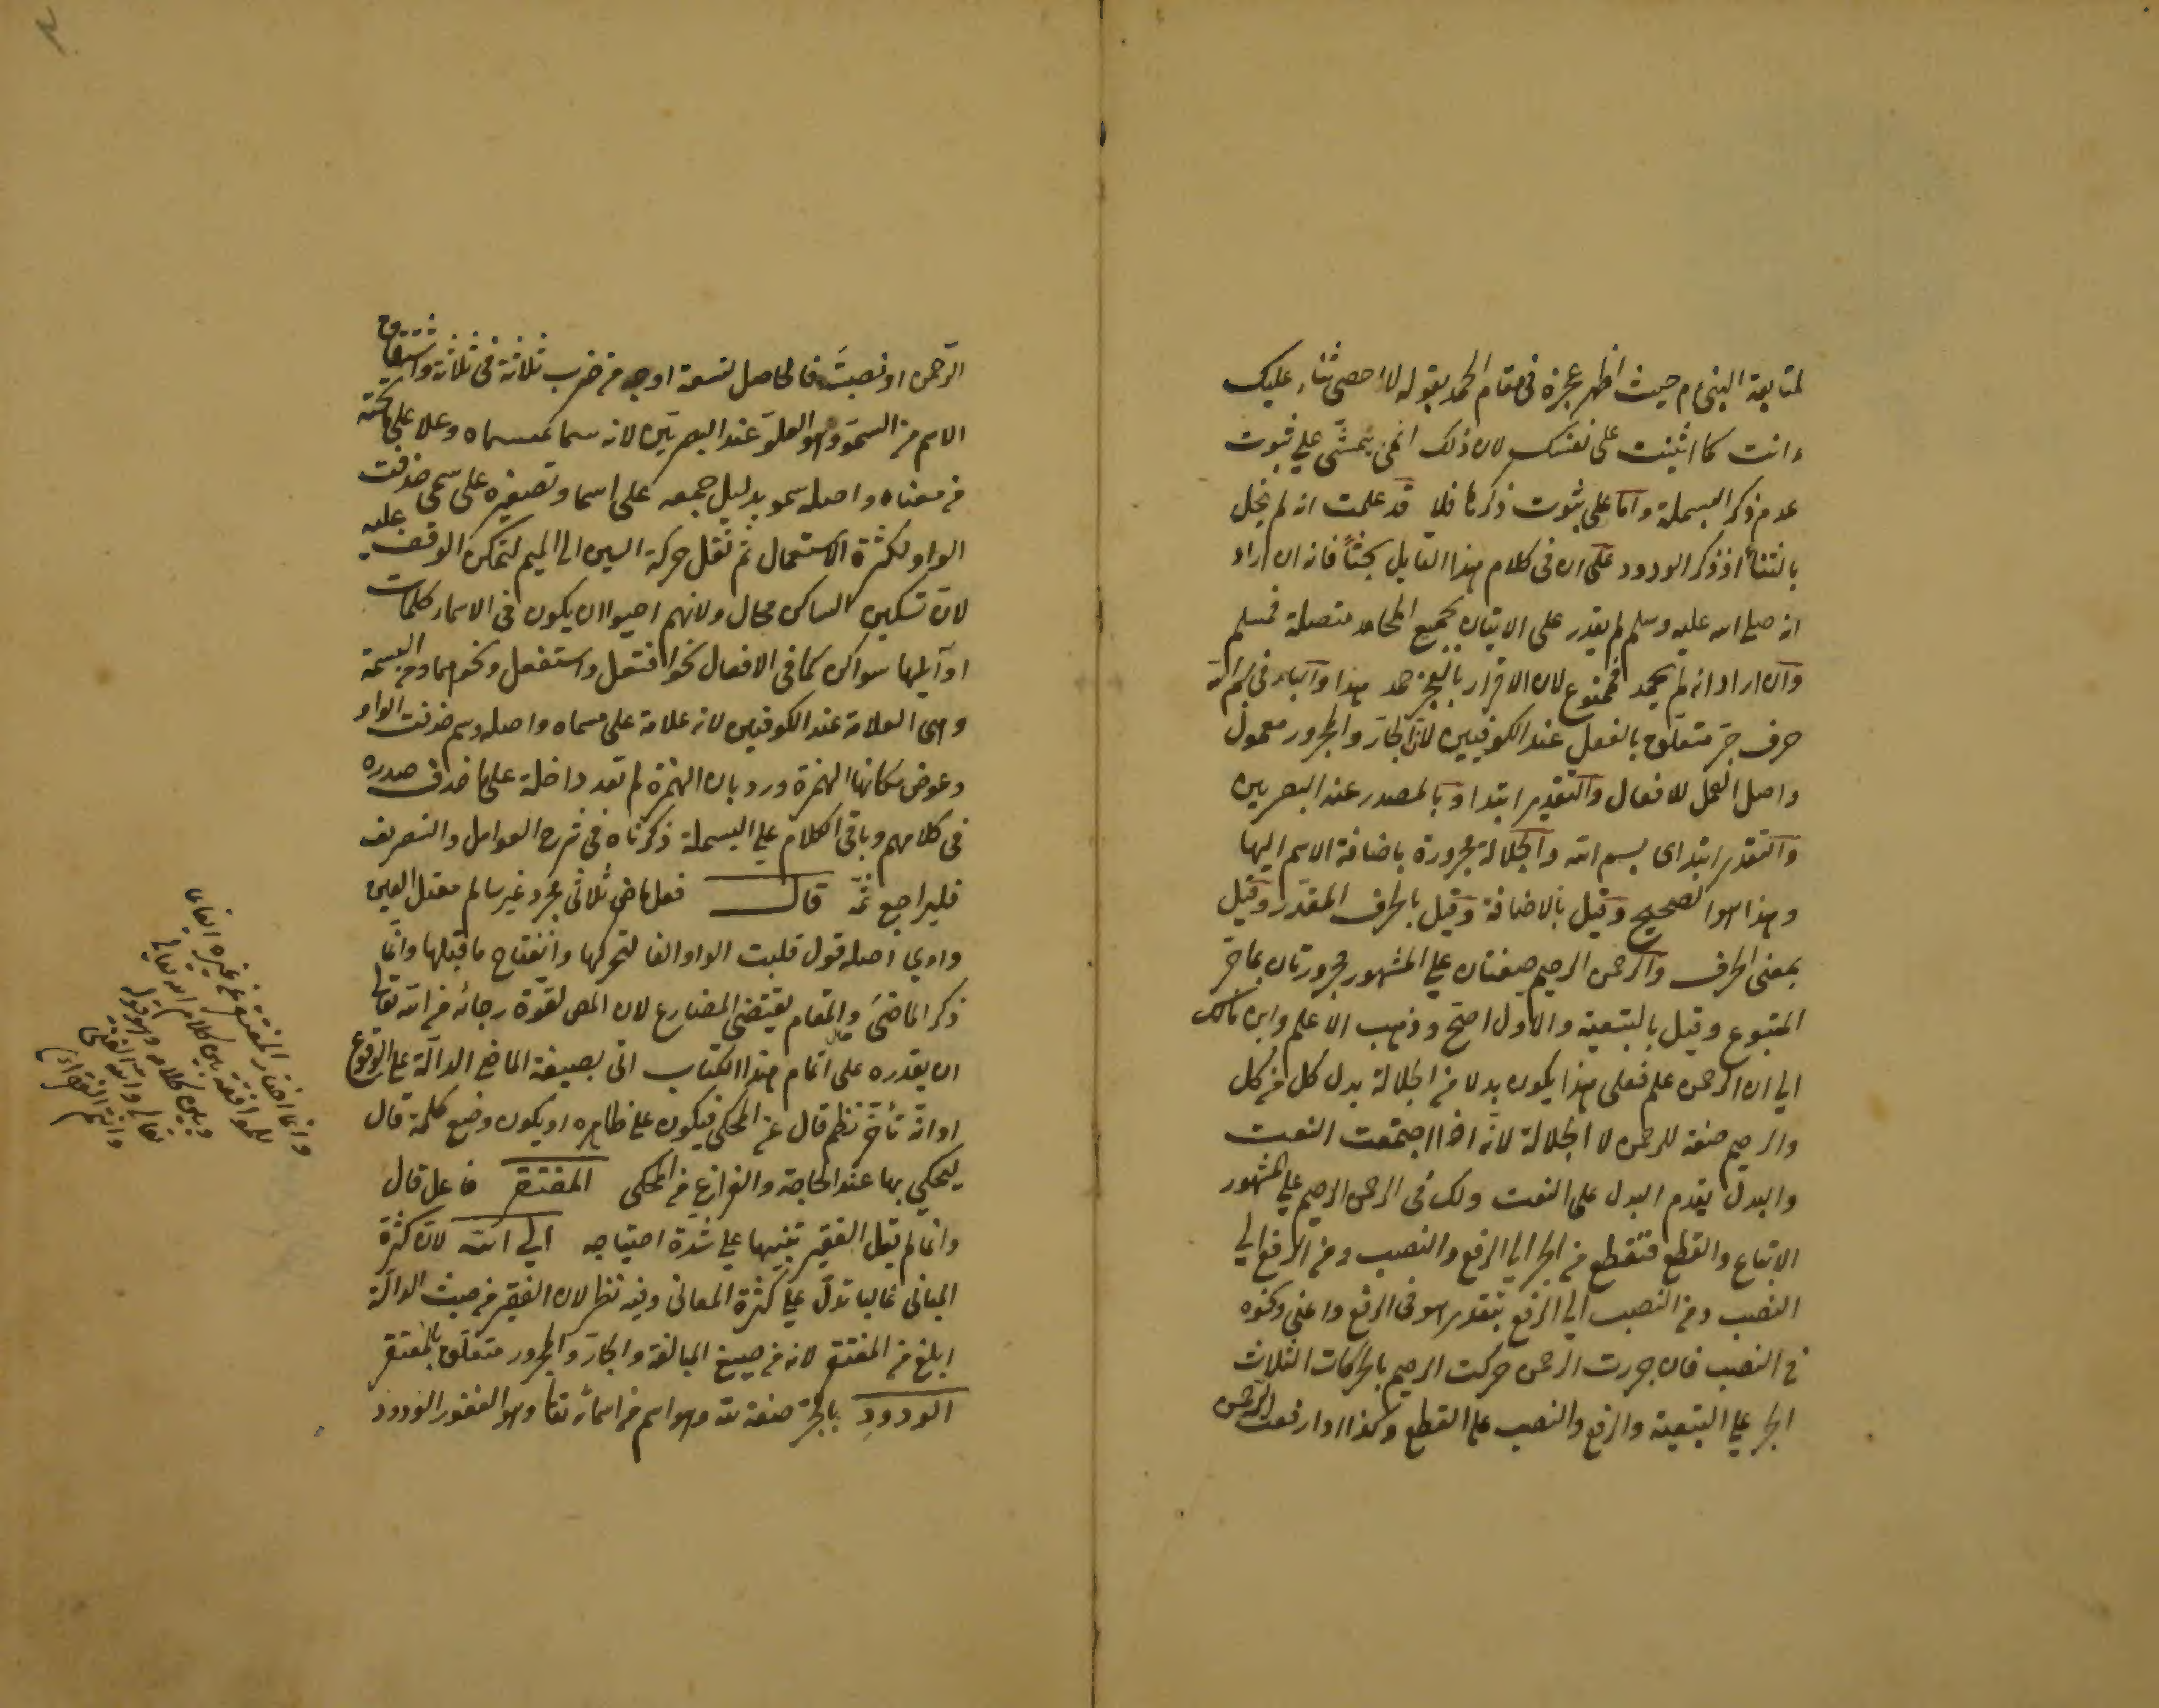 لمتابعة النبى م حيث اظهر عجزه فى مقام الحمد بقوله لا احصى ثناء عليك
انت كما اثنيت على نفسك لان ذلك انما يتمشى على ثبوت
عدم ذكر البسملة واما على ثبوت ذكرها فلا قد علمت انه لم يخل
بالثناء اذ ذكر الودود على ان فى كلام هذا القايل بحثاً فانه ان اراد
انه صلى الله عليه وسلم لم يقدر على الاتيان بجميع المحامد متصلة فمسلم
وان اراد انه لم يحمد فممنوع لان الاقرار بالعجز حمد هذا والباء فى بسم الله
حرف جر متعلق بالفعل عند الكوفيين لان الجار والمجرور معمول
واصل العمل للافعال والتقدير ابتدا وبالمصدر عند البصريين
والتقدير ابتداى بسم الله والجلالة مجرورة باضافة الاسم اليها
وهذا هو الصحيح وقيل بالاضافة وقيل بالحرف المقدر وقيل
بمعنى الحرف والرحمن الرحيم صفتان على المشهور مجرورتان بما جر
المتبوع وقيل بالتبعية والاول اصح وذهب الاعلم وابن مالك
الى ان الرحمن علم فعلى هذا يكون بدلا من الجلالة بدل كل من كل
والرحيم صفة للرحمن لا الجلالة لانه اذا اجتمعت النعت
والبدل يقدم البدل على النعت ولك فى الرحمن الرحيم على المشهور
الاتباع والقطع فتقطع من الجر الى الرفع والنصب ومن الرفع الى
النصب ومن النصب الى الرفع بتقدير هو فى الرفع واعنى ونحوه
فى النصب فان جررت الرحمن حركت الرحيم بالحركات الثلاث
الجر على التبعية والرفع والنصب على القطع وكذا اذا رفعت الرحمن
الرحمن او نصبت فالحاصل تسعة اوجه من ضرب ثلاثة فى ثلاثة واشتقاق
الاسم من السمو وهو العلو عند البصريين لانه سما بمسماه وعلا على ما تحته
من معناه واصله سمو بدليل جمعه على اسما وتصغيره على سمى حذفت
الواو لكثرة الاستعمال ثم نقل حركة السين الى الميم لتمكن الوقف عليه
لان تسكين الساكن محال ولانهم احبوا ان يكون فى الاسماء كلمات
اوآيلها سواكن كما فى الافعال نحو افتعل واستفعل ونحوهما ومن السمة
وهى العلامة عند الكوفيين لانه علامة على مسماه واصله وسم حذفت الواو
وعوض مكانها الهمزة ورد بان الهمزة لم تعد داخلة على ما حذف صدره
فى كلامهم وباقى الكلام على البسملة ذكرناه فى شرح العوامل والتصريف
فليراجع ثمة قال فعل ماض ثلاثى مجرد غير سالم معتل العين
واوي اصله قول قلبت الواو الفا لتحركها وانفتاح ما قبلها وانما
ذكر الماضى والمقام يقتضى المضارع لان المص لقوة رجائه من الله تعالى
ان يقدره على اتمام هذا الكتاب اتى بصيغة الماضى الدالة على الوقوع
او انه تأخر نظم قال عن المحكى فيكون على ظاهره او يكون وضع كلمة قال
ليحكي بها عند الحاجة والفراغ من المحكى المفتقر فاعل قال
وانما لم يقل الفقير تنبيها على شدة احتياجه الى الله لان كثرة
المبانى غالبا تدل على كثرة المعانى وفيه نظر لان الفقير من حيث الدالة
ابلغ من المفتقر لانه من صيغ المبالغة والجار والمجرور متعلق بالمفتقر
الودود بالجر صفة لله وهو اسم من اسمائه تعا وهو الغفور الودود
وانما اختار المفتقر على غيره
للموافقة بين كلام الله تعالى
وبين كلامه وهو قوله
تعالى والله الغنى
وانتم الفقراء